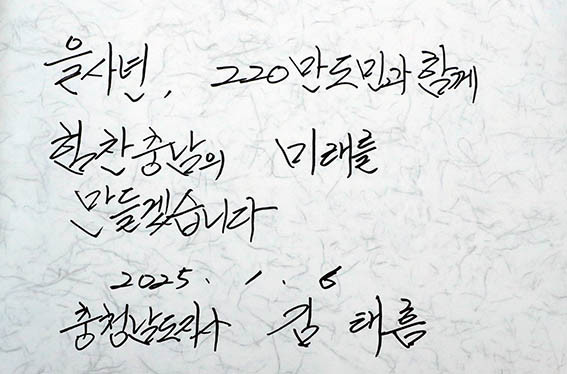 을사년, 220만도민과 함께
힘찬충남의 미래를
만들겠습니다
2025. 1. 6
충청남도지사 김태흠